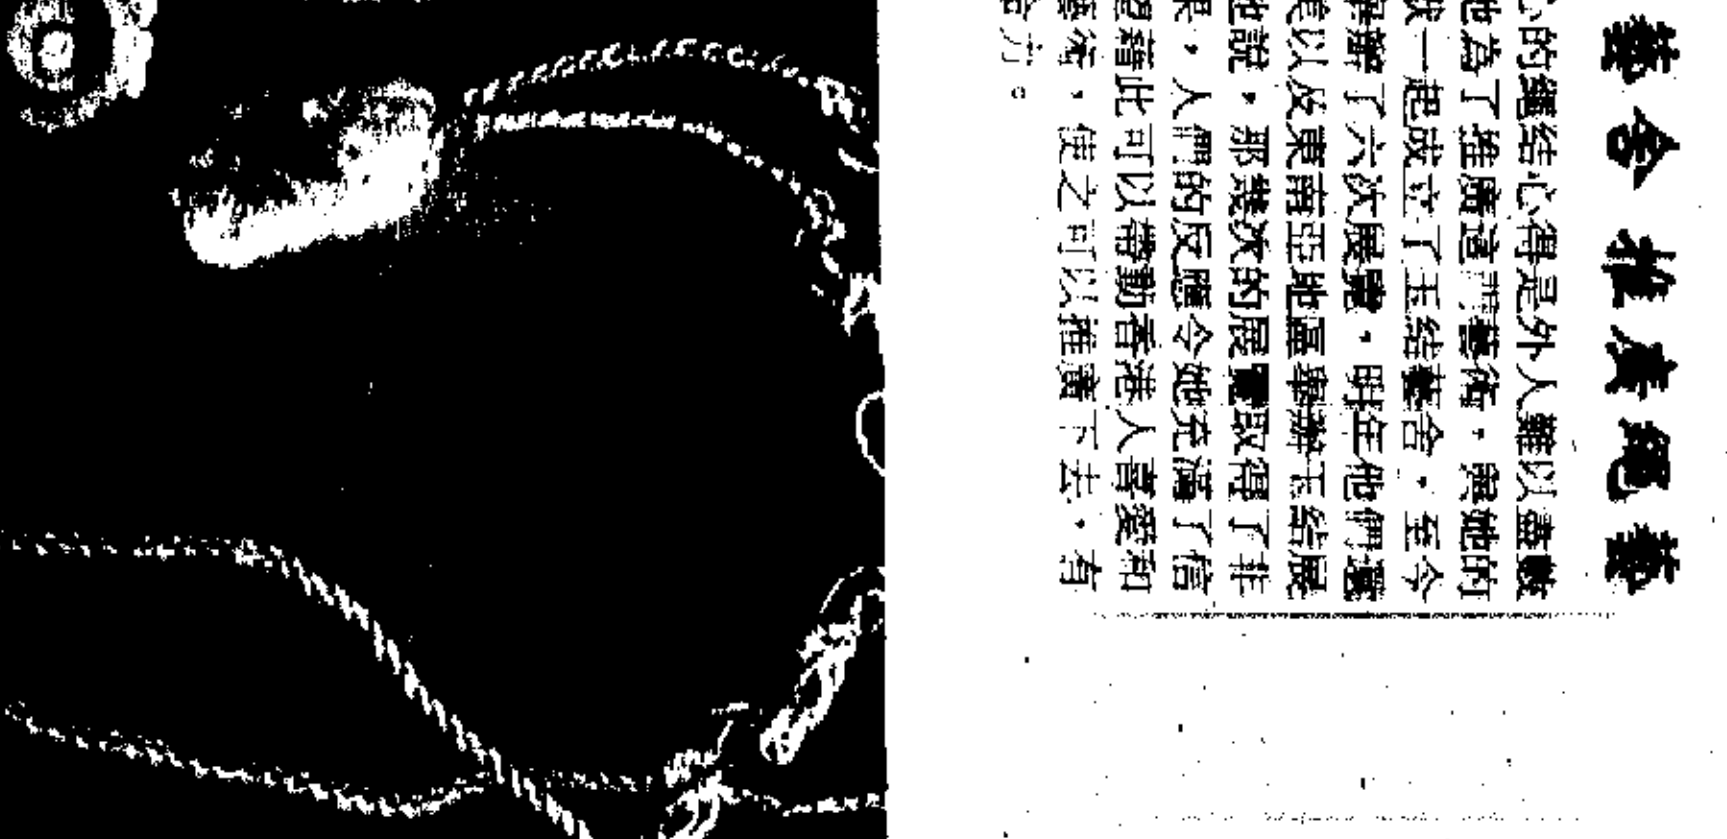 藝舍推廣繩藝
心的繩結心得是外人難以盡數
她為了推廣這門藝術，與她的
一起成立了玉結藝舍，至今
舉辦了六次展覽，明年他們還
美以及東南亞地區舉辦玉結展
她說，那幾次的展覽取得了非
果，人們的反應令她充滿了信
望藉此可以帶動香港人喜愛和
藝術，使之可以推廣下去，有
方。